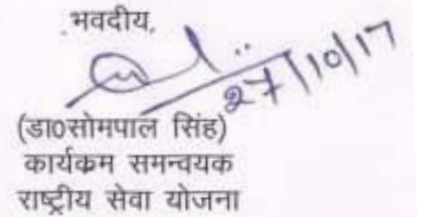 भवदीय,
27/10/17
(डा0सोमपाल सिंह)
कार्यक्रम समन्वयक
राष्ट्रीय सेवा योजना